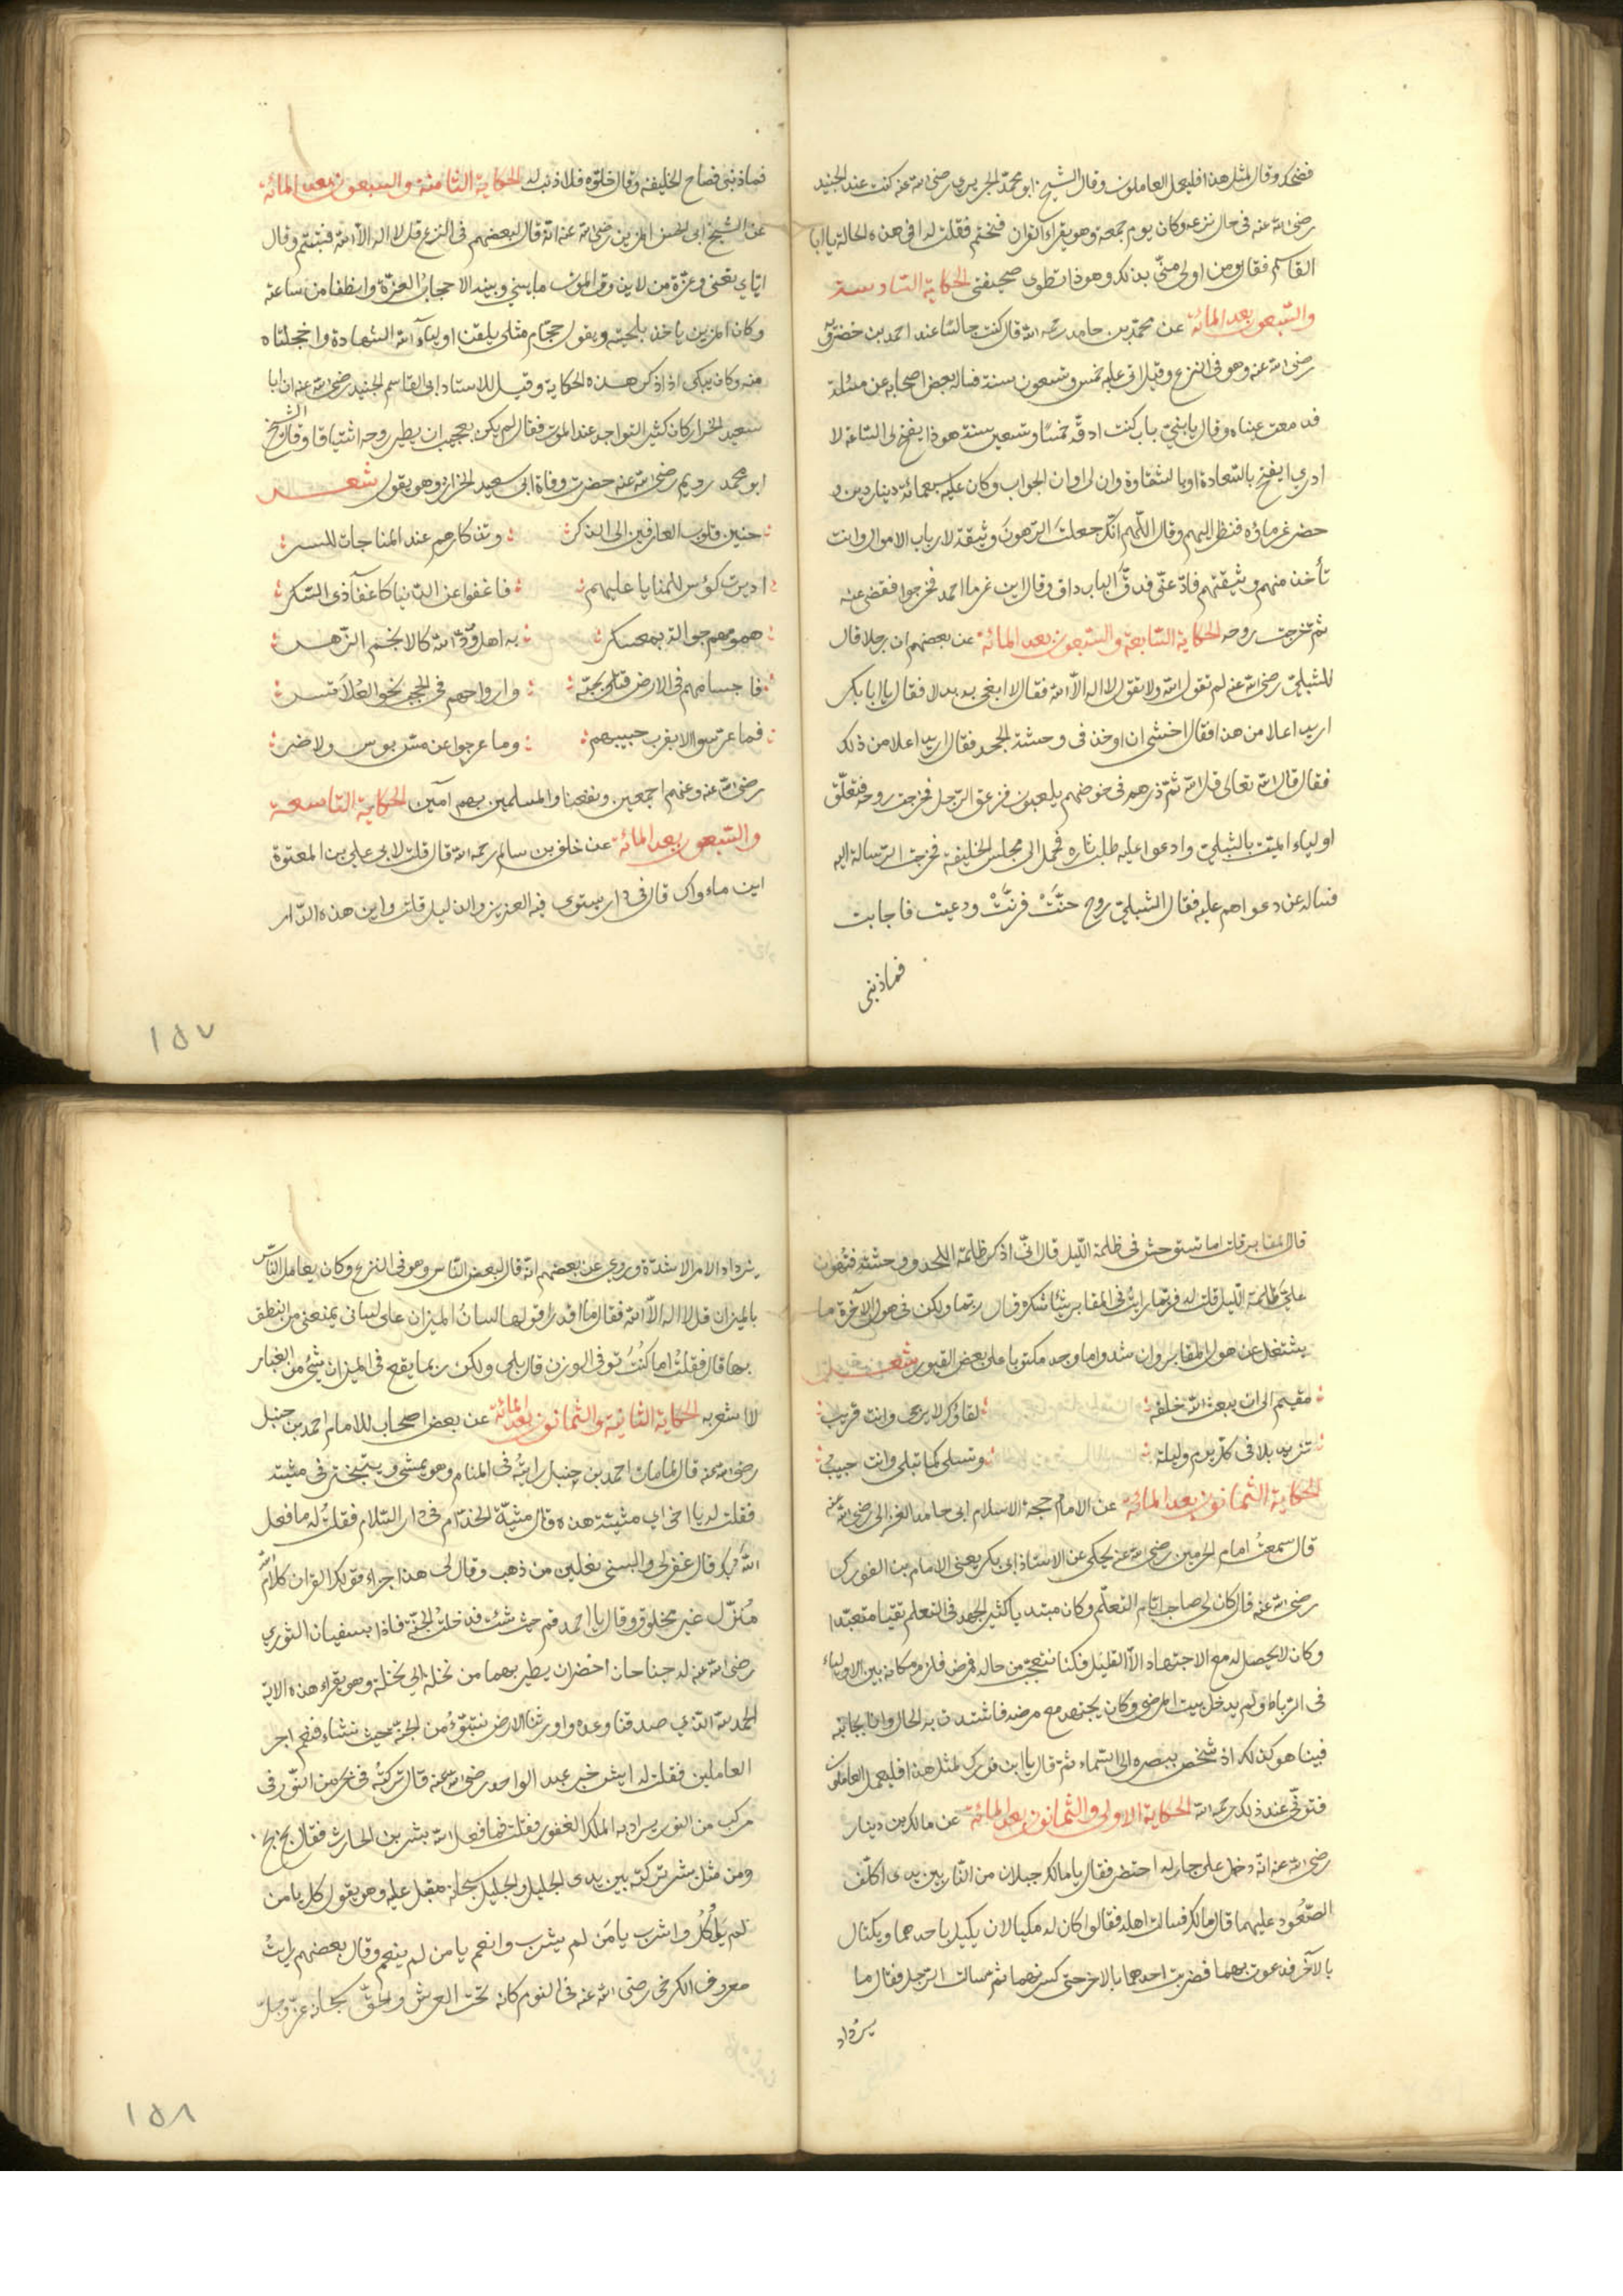 فضحك وقال لمثل هذا فليعمل العاملون وقال الشيخ ابو محمد الجريري رضى الله عنه كنت عند الجنيد
رضى الله عنه فى حال نزعه وكان يوم جمعة وهو يقراء القران فختم فقلت له افى هذه الحالة يا ابا
القاسم فقال ومن اولى منّى بذلك وهو ذا تطوى صحيفتى الحكاية السادسة
والسّبعون بعد المائة عن محمد بن حامد رحمه الله قال كنت جالسًا عند احمد بن خضرويه
رضى الله عنه وهو فى النزع وقد اتى عليه خمس وتسعون سنة فسأله بعض اصحابه عن مسئلة
فدمعت عيناه وقال يا بنيّ باب كنت ادقّه خمسًا وتسعين سنة هوذا يفتح لى الساعة لا
ادري ايفتح بالسّعادة او بالشقاوة وان لى اوان الجواب وكان عليه سبعمائة دينار دين و
حضر غرماؤه فنظر اليهم وقال اللّهم انّك جعلت الرّهون وثيقة لارباب الاموال وانت
تأخذ منهم وثيقتهم فادّ عنّى فدقّ الباب داق وقال اين غرما احمد فخرجوا فقضى عنه
ثم خرجت روحه الحكاية السّابعة والسّبعون بعد المائة عن بعضهم ان رجلا قال
للشبلىّ رضى الله عنه لم تقول الله ولا تقول لا اله الّا الله فقال لا ابغى به بدلا فقال يا ابا بكر
اريد اعلا من هذا فقال اخشى ان اوخذ فى وحشة الجحد فقال اريد اعلا من ذلك
فقال قال الله تعالى قل الله ثمّ ذرهم فى خوضهم يلعبون فزعق الرّجل فخرجت روحه فتعلّق
اولياء الميّت بالشّبلىّ وادعوا عليه طلب ثاره فحمل الى مجلس الخليفة فخرجت الرّسالة اليه
فساله عن دعواهم عليه فقال الشبلىّ روح حنّتْ فرنّتْ ودعيت فاجابت
فما ذنبى
فما ذنبى فصاح الخليفة وقال خلّوه فلا ذنب له الحكاية الثامنة والسبعون بعد المائة
عن الشيخ ابى الحسن المزين رضى الله عنه انّه قال لبعضهم فى النزع قل لا اله الّا الله فتبسّم وقال
ايّاي تعنى وعزّة من لا يذوق الموت ما بينى وبينه الا حجابُ العزّة وانطفا من ساعته
وكان المزين ياخذ بلحيته ويقول حجّام مثلى يلقن اولياء الله الشهادة واخجلتاه
منه وكان يبكى اذا ذكر هذه الحكاية وقيل للاستاد ابى القاسم الجنيد رضى الله عنه ان ابا
سعيد الخراز كان كثير التواجد عند الموت فقال لم يكن بعجب ان يطير روحه اشتياقا وقال الشيخ
ابو محمد رويم رضى الله عنه حضرت وفاة ابى سعيد الخراز وهو يقول شعر
حنين قلوب العارفين الى الذكر وتذكارهم عند المناجات للسر
اديرت كؤس للمنايا عليهم فاغفوا عن الدّنيا كاغفآ ذى السّكر
همومهم جوالة بمعسكر به اهل ودّ الله كالانجم الزّهر
فاجسامهم فى الارض قتلى بحبّه وارواحهم فى الحجب نحو العُلا تسر
فما عرّسوا الا بقرب حبيبهم وما عرجوا عن مسّ بوس ولا ضر
رضى الله عنه وعنهم اجمعين ونفعنا والمسلمين بهم آمين الحكاية التاسعة
والسّبعون بعد المائة عن خلف بن سالم رحمه الله قال قلت لابى علي بن المعتوة
اين ماواك قال فى دار يستوى فيه العزيز والذليل قلت واين هذه الدّار
١٥٧
قال المقابر قلت اما تستوحش فى ظلمة اللّيل قال انّى اذكر ظلمة اللحد ووحشته فتهون
عليّ ظلمة اللّيل قلت له فربّما رايت فى المقابر شيئا تنكره قال ربّما ولكن فى هول الآخرة ما
يشتغل عن هول المقابر وانشدوا ما وجد مكتوبا على بعض القبور شعر
مقيم الى ان يبعث الله خلقه لقاؤك لا يرجى وانت قريب
تزيد بلا فى كلّ يوم وليلة وتسلى كما تبلى وانت حبيبُ
الحكاية الثمانون بعد المائة عن الامام حجة الاسلام ابى حامد الغزالى رضى الله عنه
قال سمعت امام الحرمين رضى الله عنه يحكى عن الاستاذ ابى بكر يعنى الامام بن الفورك
رضى الله عنه قال كان لى صاحب ايّام التعلّم وكان مبتديا كثير الجهد فى التعلم تقيا متعبّدا
وكان لا يحصل له مع الاجتهاد الّا القليل فكنا نتعجّب من حاله فمرض فلزم مكانه بين الاولياء
فى الرّباط ولم يدخل بيت المرضى وكان يجتهد مع مرضه فاشتدت به الحال وانا بجانبه
فبينا هو كذلك اذ شخص ببصره الى السّماء ثمّ قال يا ابن فورك لمثل هذا فليعمل العاملون
فتوفّى عند ذلك رحمه الله الحكاية الاولى والثمانون بعد المائة عن مالك بن دينار
رضى الله عنه انّه دخل على جار له احتضر فقال يا مالك جبلان من النّار بين يدى اكلّف
الصّعود عليهما قال مالك فسالت اهله فقالوا كان له مكيالان يكيل باحدهما ويكتال
بالآخر فدعوت بهما فضربت احدهما بالاخر حتى كسرتهما ثم سالت الرّجل فقال ما
يزداد
يزداد الامر الا شدّة وروي عن بعضهم انّه قال لبعض النّاس وهو فى النزع وكان يعامل النّاس
بالميزان قل لا اله الّا الله فقال ما اقدر اقولها لسانُ الميزان على لسانى يمنعنى من النطق
بها قال فقلتُ اما كُنتَ توفى الوزن قال بلى ولكن ربما يقع فى الميزان شئ من الغبار
لا اشعر به الحكاية الثانية والثمانون بعد المائة عن بعض اصحاب للامام احمد بن حنبل
رضى الله عنه قال لما مات احمد بن حنبل رايتُه فى المنام وهو يمشى ويتبختر فى مشيته
فقلت له يا اخى اي مشيتة هذه قال مشيّة الخدّام فى دار السّلام فقلتُ له ما فعل
اللّه بك قال غفر لى والبسنى نعلين من ذهب وقال لى هذا جزاء قولك القران كلام الله
مُنزّل غير مخلوق وقال يا احمد قم حيث شئت فدخلتُ الجنّة فاذا بسفيان الثوري
رضى الله عنه له جناحان اخضران يطير بهما من نخلة الى نخلة وهو يقراء هذه الاية
الحمد لله الذي صدقنا وعده واورثنا الارض نتبوّءُ من الجنّة حيث نشاء فنعم اجر
العاملين فقلت له ايش خبر عبد الواحد رضى الله عنه قال تركته فى بحر من النّور فى
مركب من النور يسراد به الملك الغفور فقلت فما فعل الله بشر بن الحارث فقال بخ بخ
ومن مثل بشر تركته بين يدى الجليل والجليل سبحانه مقبل عليه وهو يقول كل يا من
لم يأكُلُ واشرب يا مَن لم يشرب وانعم يا من لم ينعم وقال بعضهم رايتُ
معروف الكرخى رضى الله عنه فى النوم كانه تحت العرش والحقّ سبحانه عزّ وجلّ
١٥٨